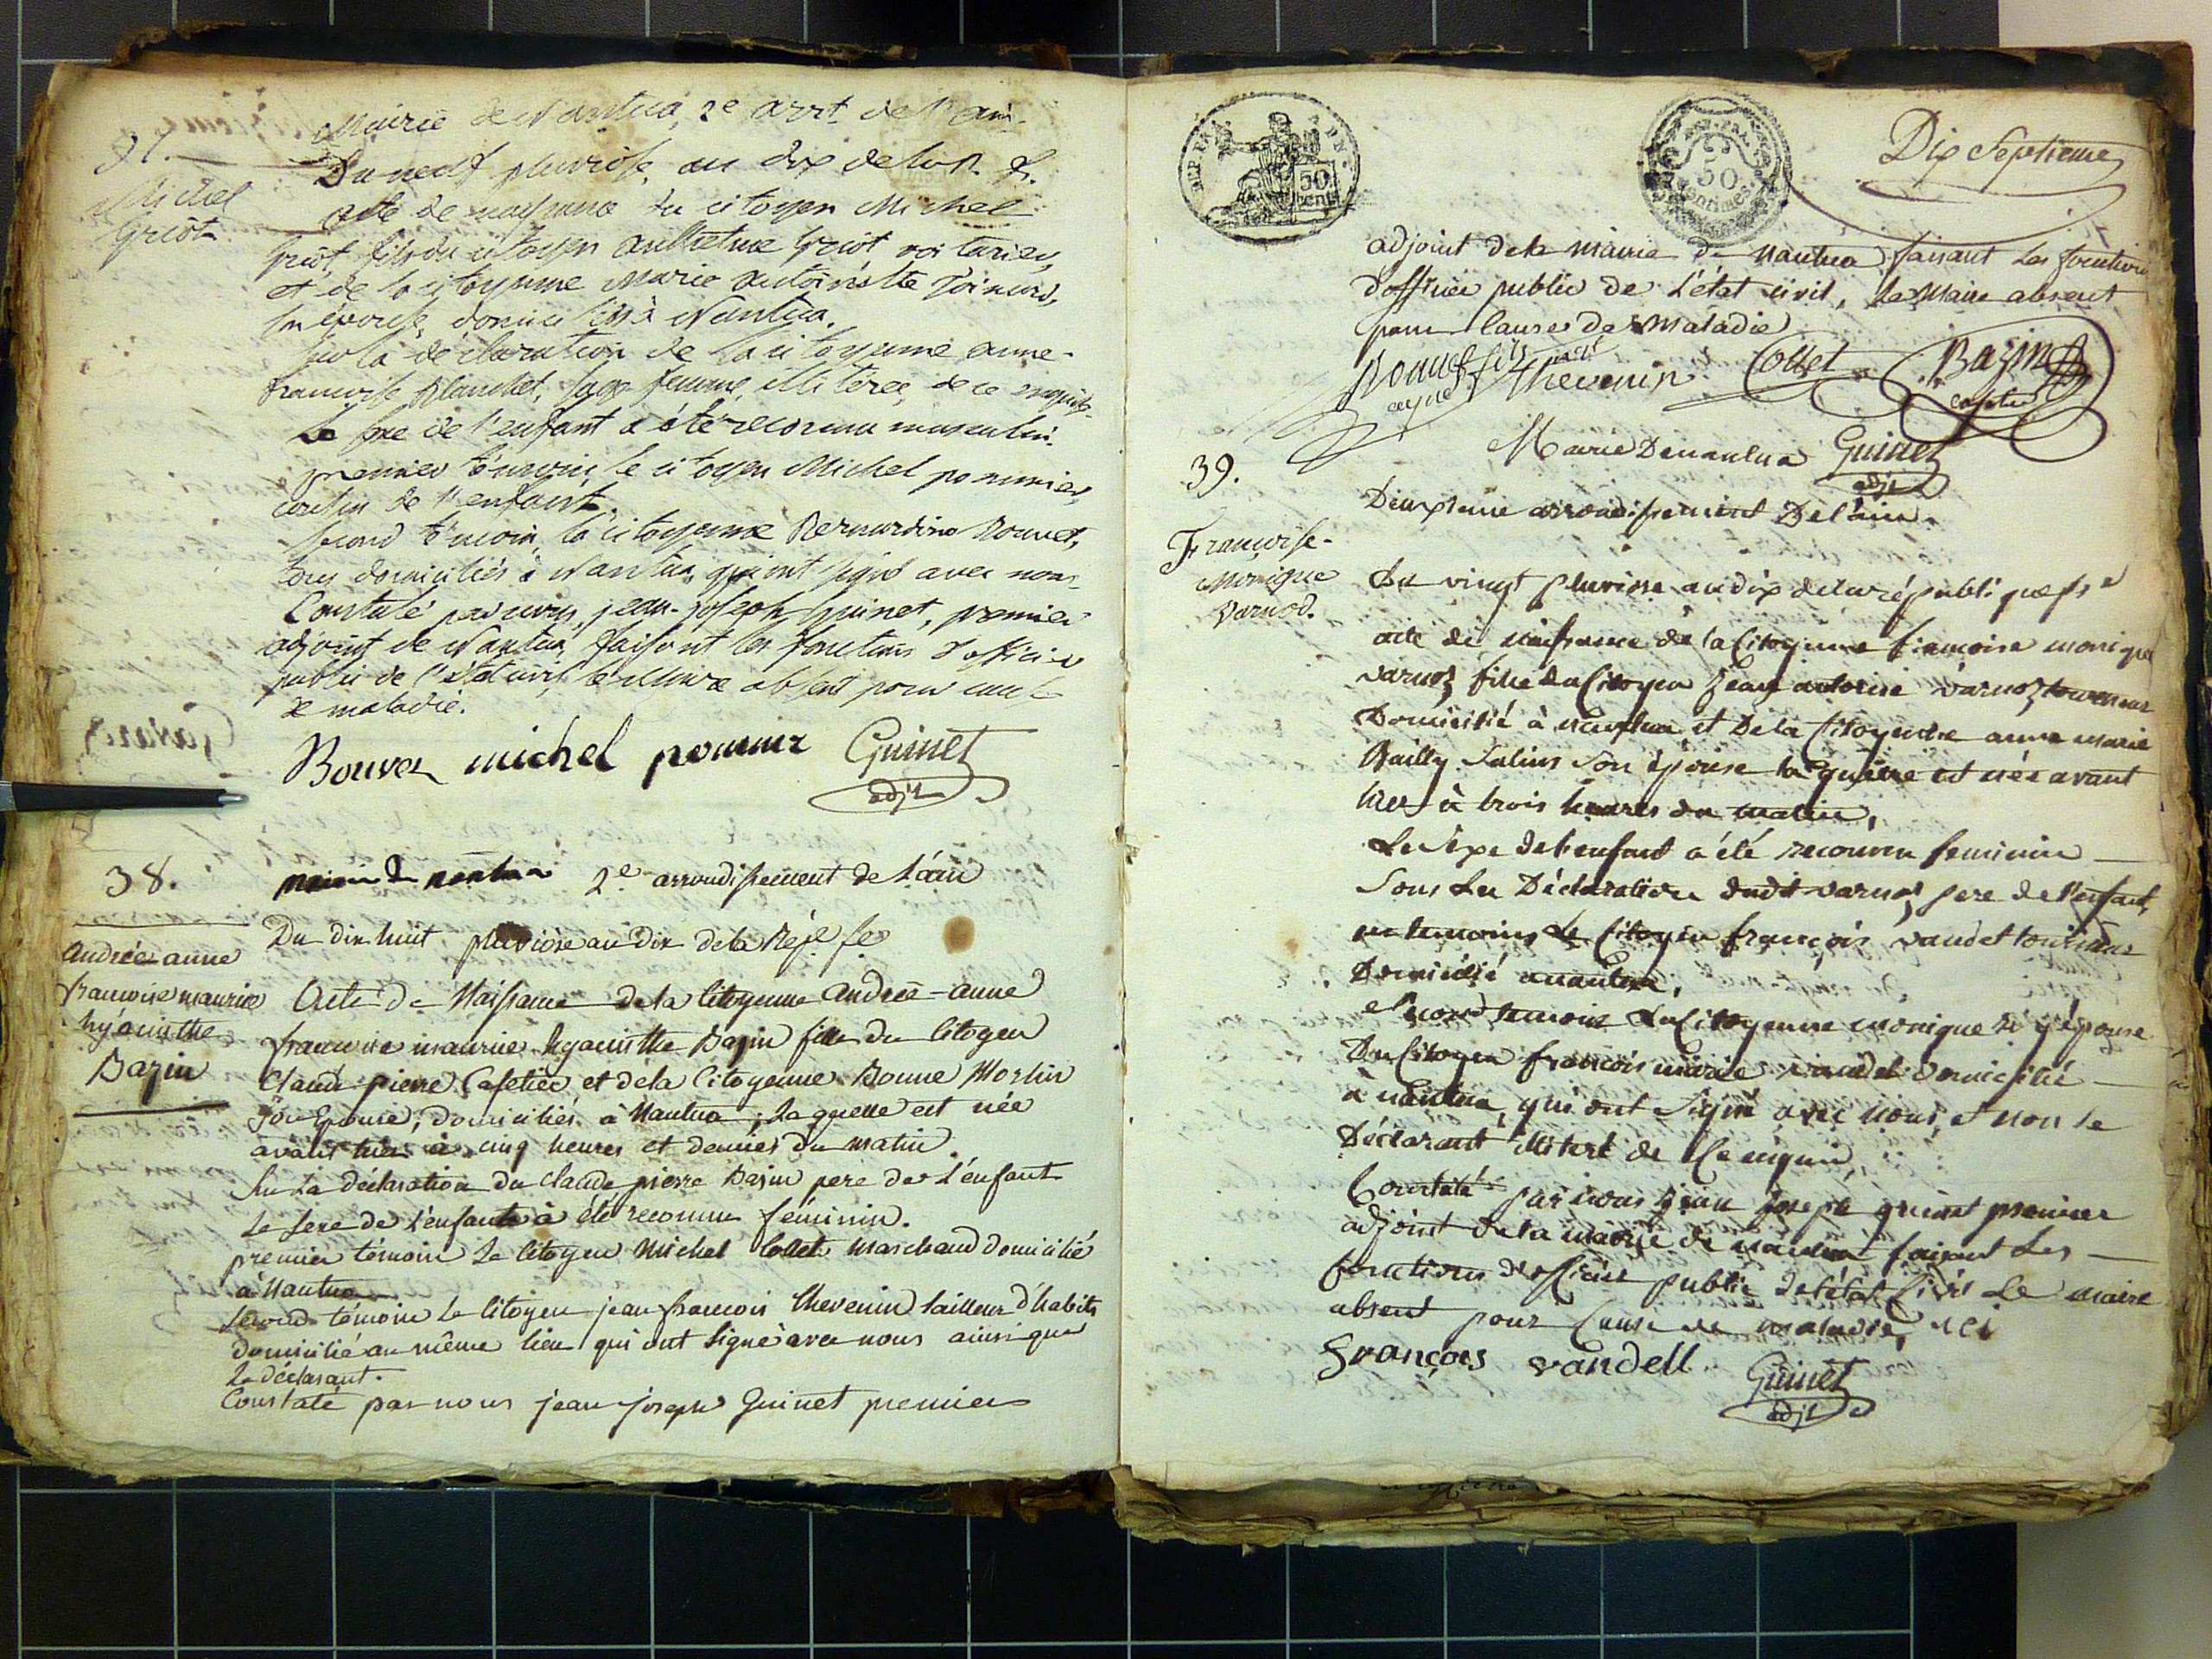 37.
Michel
Griot
Mairie de Nantua, 2e arrt. de l'ain.
Du neuf pluviose, an dix de la R. f.
acte de naissance du citoyen Michel
Griot, fils du citoyen anthelme Griot, voiturier,
et de la citoyenne Marie antoinette
son épouse, domiciliés à Nantua.
sur la déclaration de la citoyenne anne-
francoise Blanchet, sage femme, illiterée, de ce enquise
Le sexe de l'enfant a été reconnu masculin.
premier témoin, le citoyen Michel pommier,
cousin de l'enfant.
second témoin, la citoyenne Bernardine Bouvet,
tous domiciliés à Nantua, qui ont signé avec nous
Constaté par nous, jean-joseph Guinet, premier
adjoint de Nantua, faisant les fonctions d'officier
public de l'état civil, le Maire absent pour cause
de maladie.
Bouvez michel pommier Guinet
adjt
38.
Andrée anne
francoise maurice
hyacinthe
Bazin
mairie de nantua 2e arrondissement de l'ain
Du dix huit pluviose an dix de la Rép.e fe
Acte de Naissance de la Citoyenne Andrée-anne
francoise maurice hyacinthe Bazin fille du Citoyen
Claude pierre Cafetier et de la Citoyenne Bonne
son Epouse, domiciliés à Nantua, laquelle est née
avant hier à cinq heures et demies du matin
Sur La déclaration du claude pierre Bazin pere de L'enfant
Le sexe de L'enfant à été reconnu féminin.
premier témoin Le Citoyen Michel Collet Marchand domicilié
à Nantua
Second témoin Le Citoyen jean francois thevenin tailleur d'habits
domicilié au même lieu qui ont signé avec nous ainsi que
Le déclarant.
Constaté par nous jean joseph Guinet premier
50
cent
50
centimes
Dix Septieme
adjoint de la mairie de Nantua faisant Les fonctions
d'officier public de L'état civil, Le Maire absent
pour Cause de Maladie
Thevenin Collet Bazin
cafetier
Guinet
adjt
39.
Francoise-
Monique
Varnod.
Mairie De nantua
Deuxieme arrondissement De l'ain.
Du vingt pluviose an dix de la républiquefse
acte de naissance de la Citoyenne francoise monique
varnoz fille du Citoyen Jean antoine varnoz tourneur
Domicilié à nantua et De la Citoyenne anne marie
Bailly Salins son épouse laquelle est née avant
hier à trois heures du matin,
Le Sexe de l'enfant a été reconnu feminin
Sous La Déclaration dudit varnoz pere de l'enfant,
Le Citoyen françois vandel tourneur
Domicilié a nantua,
second temoin La Citoyenne monique épouse
Du Citoyen francois marie vandel Domicilié
à nantua, qui ont signé avec nous, et non le
Déclarant illiteré de Ce enquis,
Constaté par nous Jean Joseph guinet premier
adjoint de la mairie de nantua faisant Les
fonctions d'officier public de l'état Civil Le maire
absent pour Cause de maladie,
François vandell
Guinet
adjt